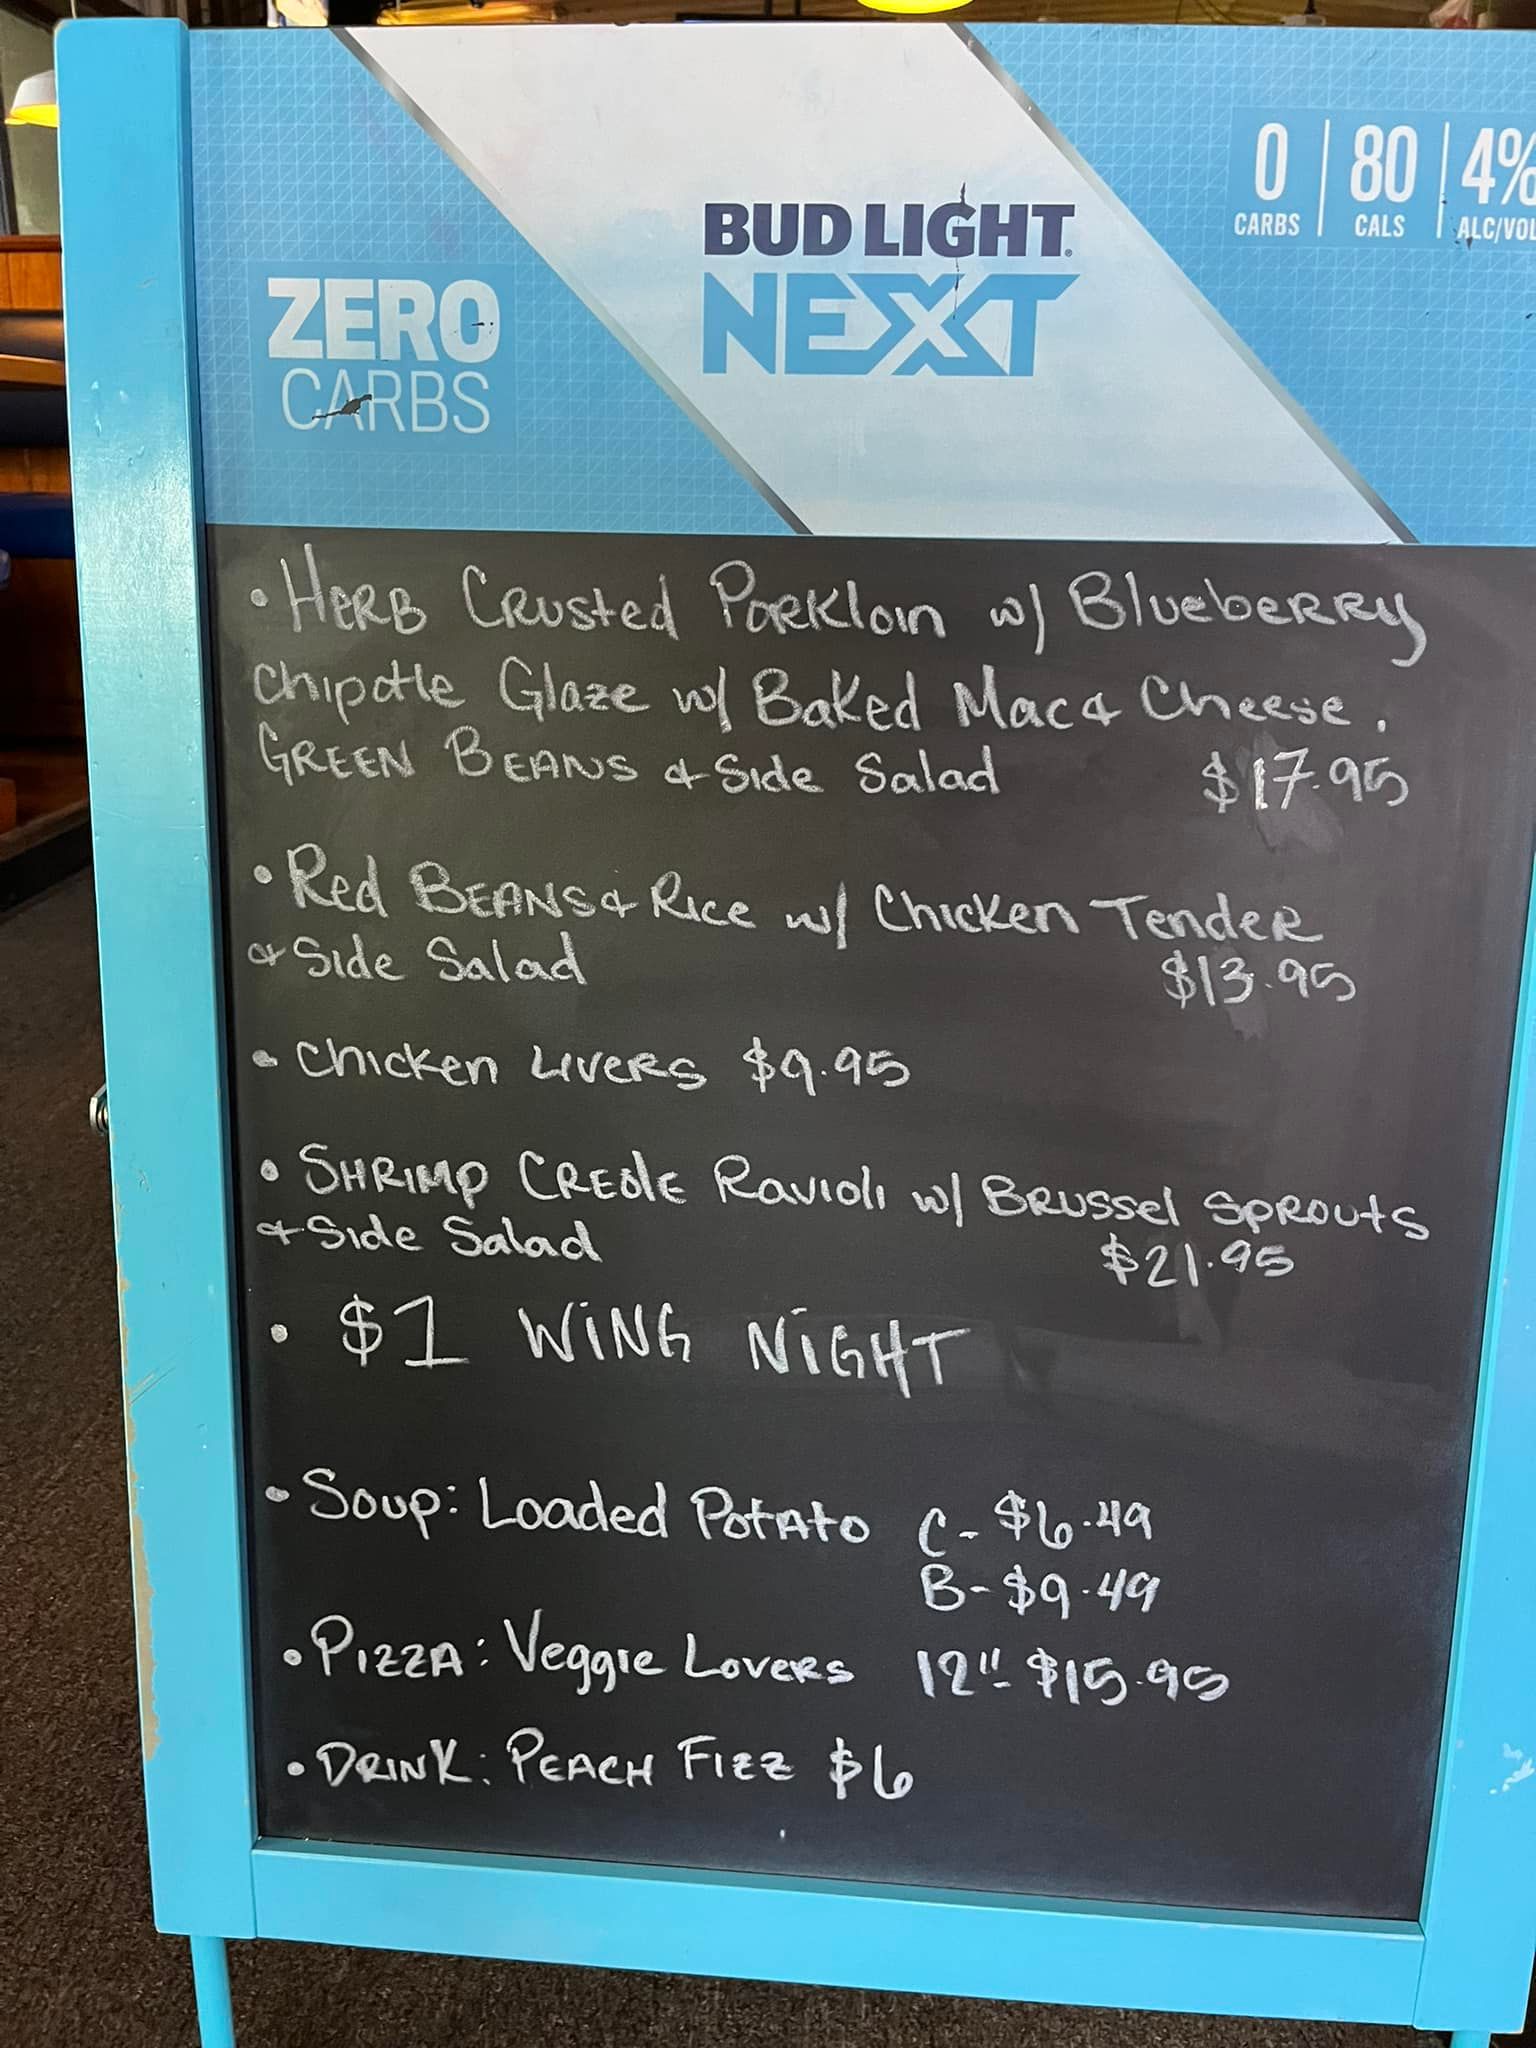 ZERO
CARBS
BUD LIGHT
NEXT
0 CARBS | 80 CALS | 4% ALC/VOL
• Herb Crusted Porkloin w/ Blueberry
Chipotle Glaze w/ Baked Mac & Cheese.
Green Beans & Side Salad $17.95
• Red Beans & Rice w/ Chicken Tender
& Side Salad $13.95
• Chicken Livers $9.95
• Shrimp Creole Ravioli w/ Brussel Sprouts
& Side Salad $21.95
• $1 WING NIGHT
• Soup: Loaded Potato C- $6.49
B- $9.49
• Pizza: Veggie Lovers 12"- $15.95
• Drink: Peach Fizz $6